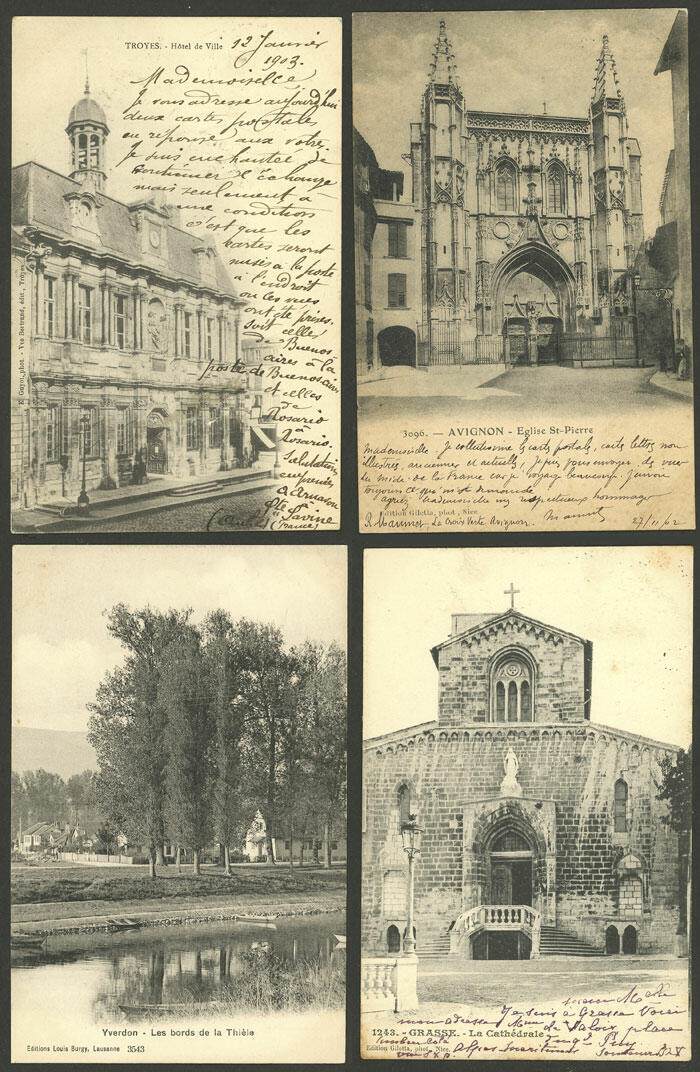 TROYES. - Hôtel de Ville
12 Janvier
1903.
Mademoiselle
Je vous adresse aujourd'hui
deux cartes postales
en réponse aux votre.
Je suis enchantée de
continuer l'échange
mais seulement à
une condition
c'est que les
cartes seront
mises à la poste
à l'endroit
ou les vues
ont été prises.
soit celles
de Buenos
aires à la
poste de Buenos aires
et celles
de
Rosario
à
Rosario.
Salutations
(Aube)
Ste Savine
(France)
phot. - Vve Bertrand, édit., Troyes
3096. — AVIGNON - Eglise St-Pierre
Mademoiselle. Je collectionne les carte postale, carte lettres non
illustrées, anciennes et actuelles, Je puis vous envoyer des vues
du midi de la France car je voyage beaucoup.
toujours ce que
respectueux hommages
Edition Giletta, phot., Nice
La Croix Verte Avignon.
27/11/02
Yverdon - Les bords de la Thièle
Editions Louis Burgy, Lausanne 3543
1243. - GRASSE. - La Cathédrale
Edition Giletta, phot., Nice
Je suis à Grasse Voici
mon adresse Mme de place
Alpes Maritimes